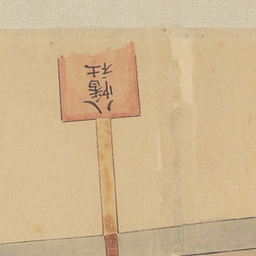 八幡社